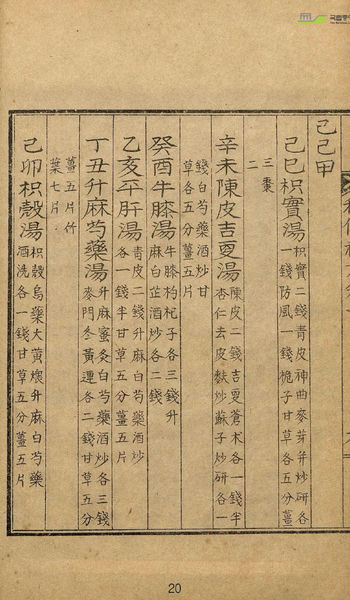 己己甲
己巳枳實湯 枳實二錢靑皮神曲麥芽幷炒硏各
一錢防風一錢梔子甘草各五分薑
三棗
二
辛未陳皮吉更湯 陳皮二錢吉更蒼朮各一錢半
杏仁去皮麩炒蘇子炒硏各一
錢白芍藥酒炒甘
草各五分薑五片
癸酉牛膝湯 牛膝枸杞子各三錢升
麻白芷酒炒各二錢
乙亥平肝湯 靑皮二錢升麻白芍藥酒炒
各一錢半甘草五分薑五片
丁丑升麻芍藥湯 升麻蜜炙白芍藥酒炒各三錢
麥門冬黃連各二錢甘草五分
薑五片竹
葉七片
己卯枳殼湯 枳殼烏藥大黃煨升麻白芍藥
酒洗各一錢甘草五分薑五片
20